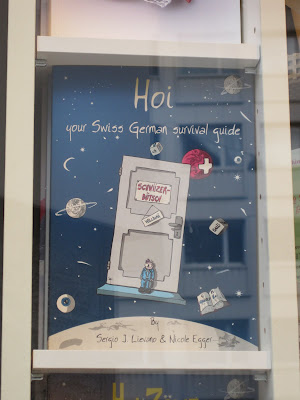 Hoi
your Swiss German survival guide
SCHWIIZER-
DÜTSCH
WELCOME
by
Sergio J. Lievano & Nicole Egger
Hoi Zäme